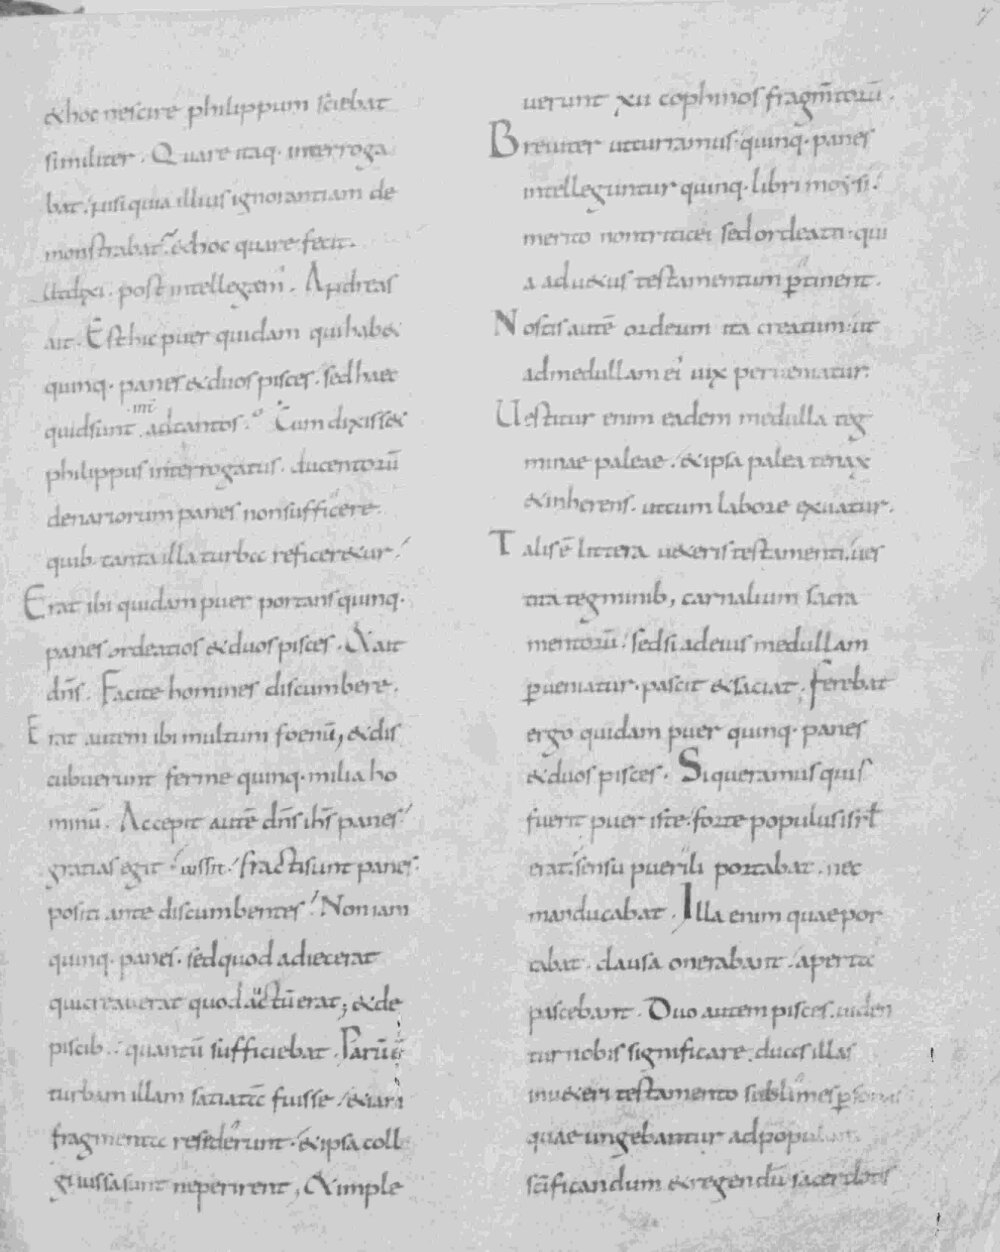 &hoc nescire philippum sciebat
similiter. Quare itaq· interroga
bat. nisi quia illius ignorantiam de
monstrabat. &hoc quare fecit.
post intellegam. Andreas
ait. Est hic puer quidam qui hab&
quinq· panes & duos pisces. sed haec
quid sunt int ad tantos. Cum dixiss&
philippus interrogatus. ducentorū
denariorum panes non sufficere
quib· tanta illa turba reficer&ur.
Erat ibi quidam puer portans quinq·
panes ordeatios & duos pisces. &ait
dn̄s. Facite homines discumbere.
Erat autem ibi multum foenū, & dis
cubuerunt ferme quinq· milia ho
minū. Accepit autē dn̄s ihs̄ panes
gratias egit iussit. fracti sunt panes.
positi ante discumbentes. Non iam
quinq· panes. sed quod adiecerat
qui creauerat quod actū erat; & de
piscib· quantū sufficiebat. Parū ē
turbam illam satiatā fuisse &iam
fragmenta resederunt. & ipsa coll
gi iussa sunt ne perirent, & imple
uerunt xii cophinos fragm̄torū.
Breuiter ut curramus. quinq· panes
intelleguntur quinq· libri moysi.
merito non triticei sed ordeacii. qui
a ad u&us testamentum ꝑtinent.
Nostis autē ordeum ita creatum. ut
ad medullam ei uix perueniatur.
Uestitur enim eadem medulla teg
mine paleae. & ipsa palea tenax
& inherens. ut cum labore exuatur.
Talis ē littera u&eris testamenti. ues
tita tegminib; carnalium sacra
mentorū. sed si ad eius medullam
ꝑueniatur. pascit & saciat. ferebat
ergo quidam puer quinq· panes
& duos pisces. Si queramus quis
fuerit puer iste. forte populus isrł
erat. sensu puerili portabat. nec
manducabat. Illa enim quae por
tabat. clausa onerabant. aperta
pascebant. Duo autem pisces. uiden
tur nobis significare. duas illas
in u&eri testamento sublimes ꝑsonas
quae ungebantur ad populum
scīficandum & regendū sacerdotis